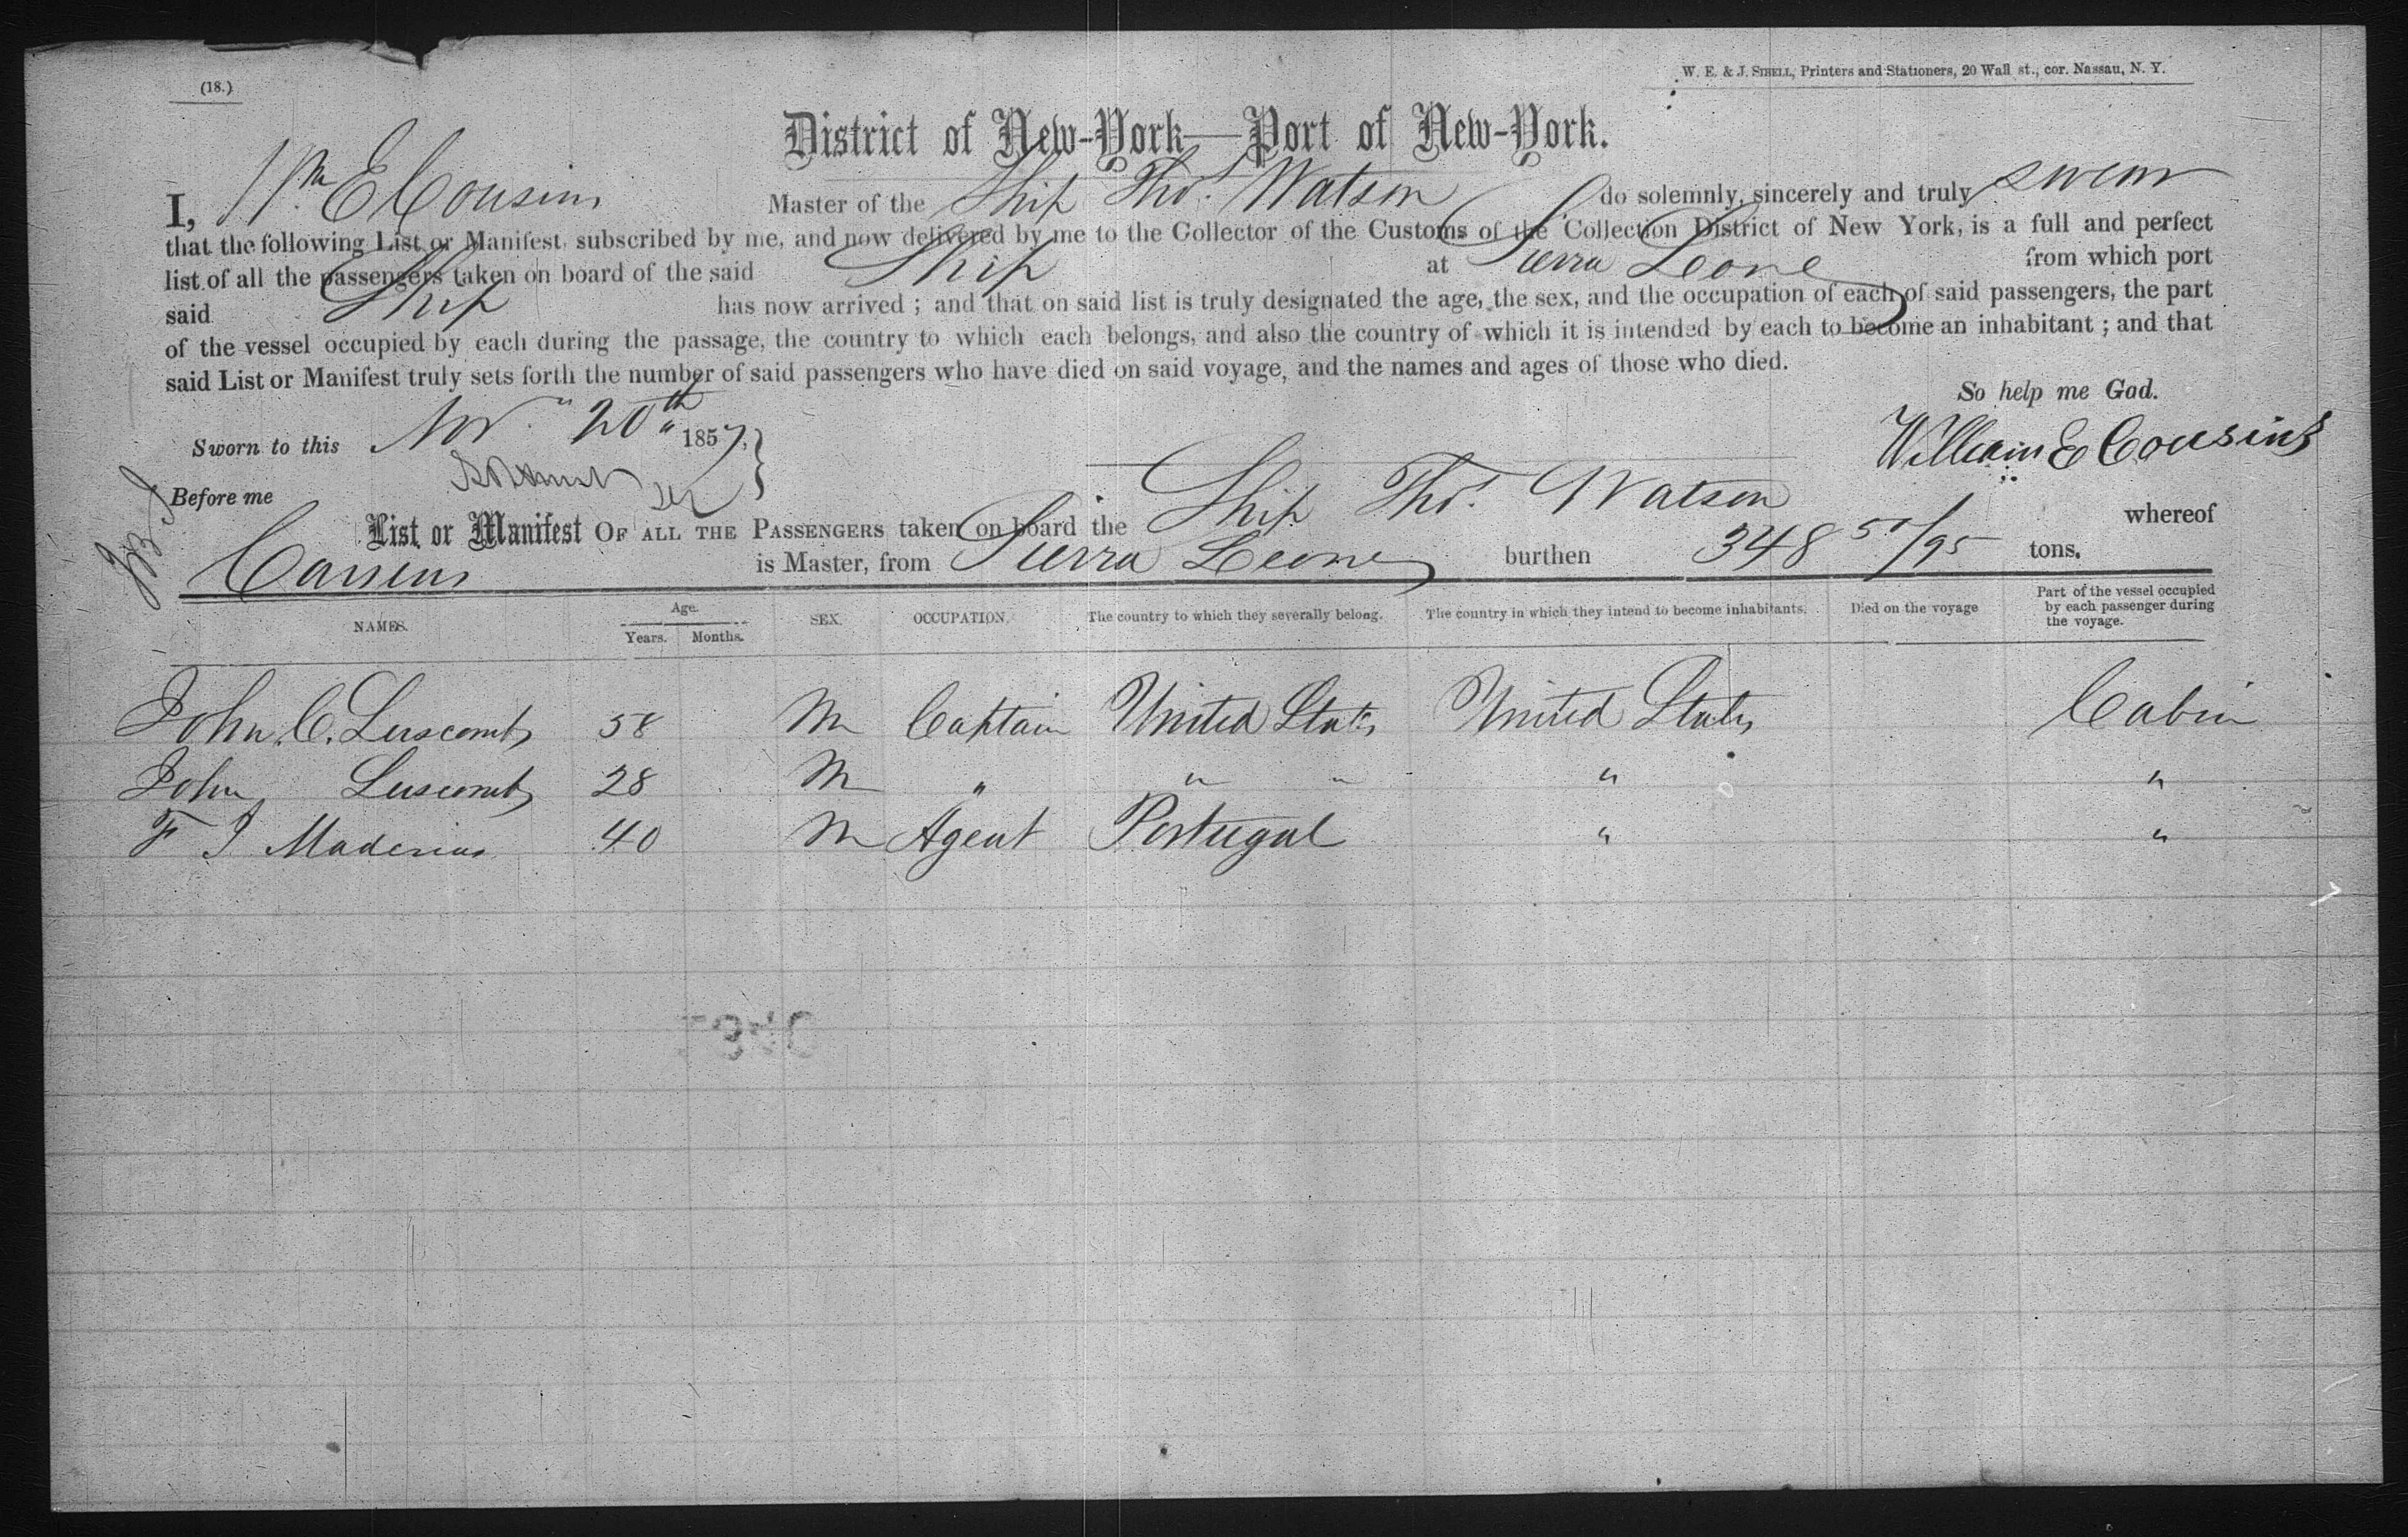 (18.)
W. E. & J. SIBELL, Printers and Stationers, 20 Wall st., cor. Nassau, N. Y.
District of New-York—Port of New-York.
I, Wm E Cousins Master of the Ship Thos. Watson do solemnly, sincerely and truly swear
that the following List or Manifest, subscribed by me, and now delivered by me to the Collector of the Customs of the Collection District of New York, is a full and perfect
list of all the passengers taken on board of the said Ship at Sierra Leone from which port
said Ship has now arrived ; and that on said list is truly designated the age, the sex, and the occupation of each of said passengers, the part
of the vessel occupied by each during the passage, the country to which each belongs, and also the country of which it is intended by each to become an inhabitant ; and that
said List or Manifest truly sets forth the number of said passengers who have died on said voyage, and the names and ages of those who died.
So help me God.
Sworn to this Nov. 20th 1857, William E Cousins
Before me
List or Manifest OF ALL THE PASSENGERS taken on board the Ship Thos. Watson whereof
is Master, from Sierra Leone burthen 348 /95 tons.
NAMES. Age. Years. Months. SEX. OCCUPATION. The country to which they severally belong. The country in which they intend to become inhabitants. Died on the voyage Part of the vessel occupied by each passenger during the voyage.
John C. Luscomb 58 M Captain United States United States Cabin
John Luscomb 28 M " " " " "
F J 40 M Agent Portugal " "